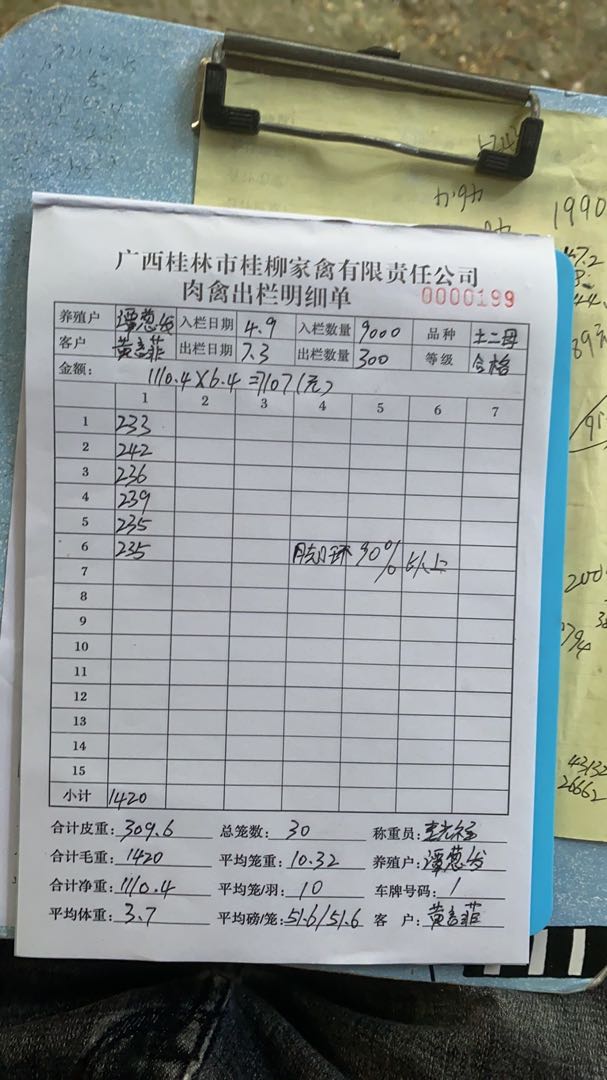 广西桂林市桂柳家禽有限责任公司
肉禽出栏明细单 0000199
养殖户 入栏日期 4.9 入栏数量 9000 品种 土二母
客户 出栏日期 7.3 出栏数量 300 等级 合格
金额: 1110.4×6.4=7107(元)
1 2 3 4 5 6 7
1 233
2 242
3 236
4 239
5 235
6 235 90% 以上
7
8
9
10
11
12
13
14
15
小计 1420
合计皮重: 309.6 总笼数: 30 称重员:
合计毛重: 1420 平均笼重: 10.32 养殖户:
合计净重: 1110.4 平均笼/羽: 10 车牌号码: 1
平均体重: 3.7 平均磅/笼: 51.6/51.6 客 户:
1990